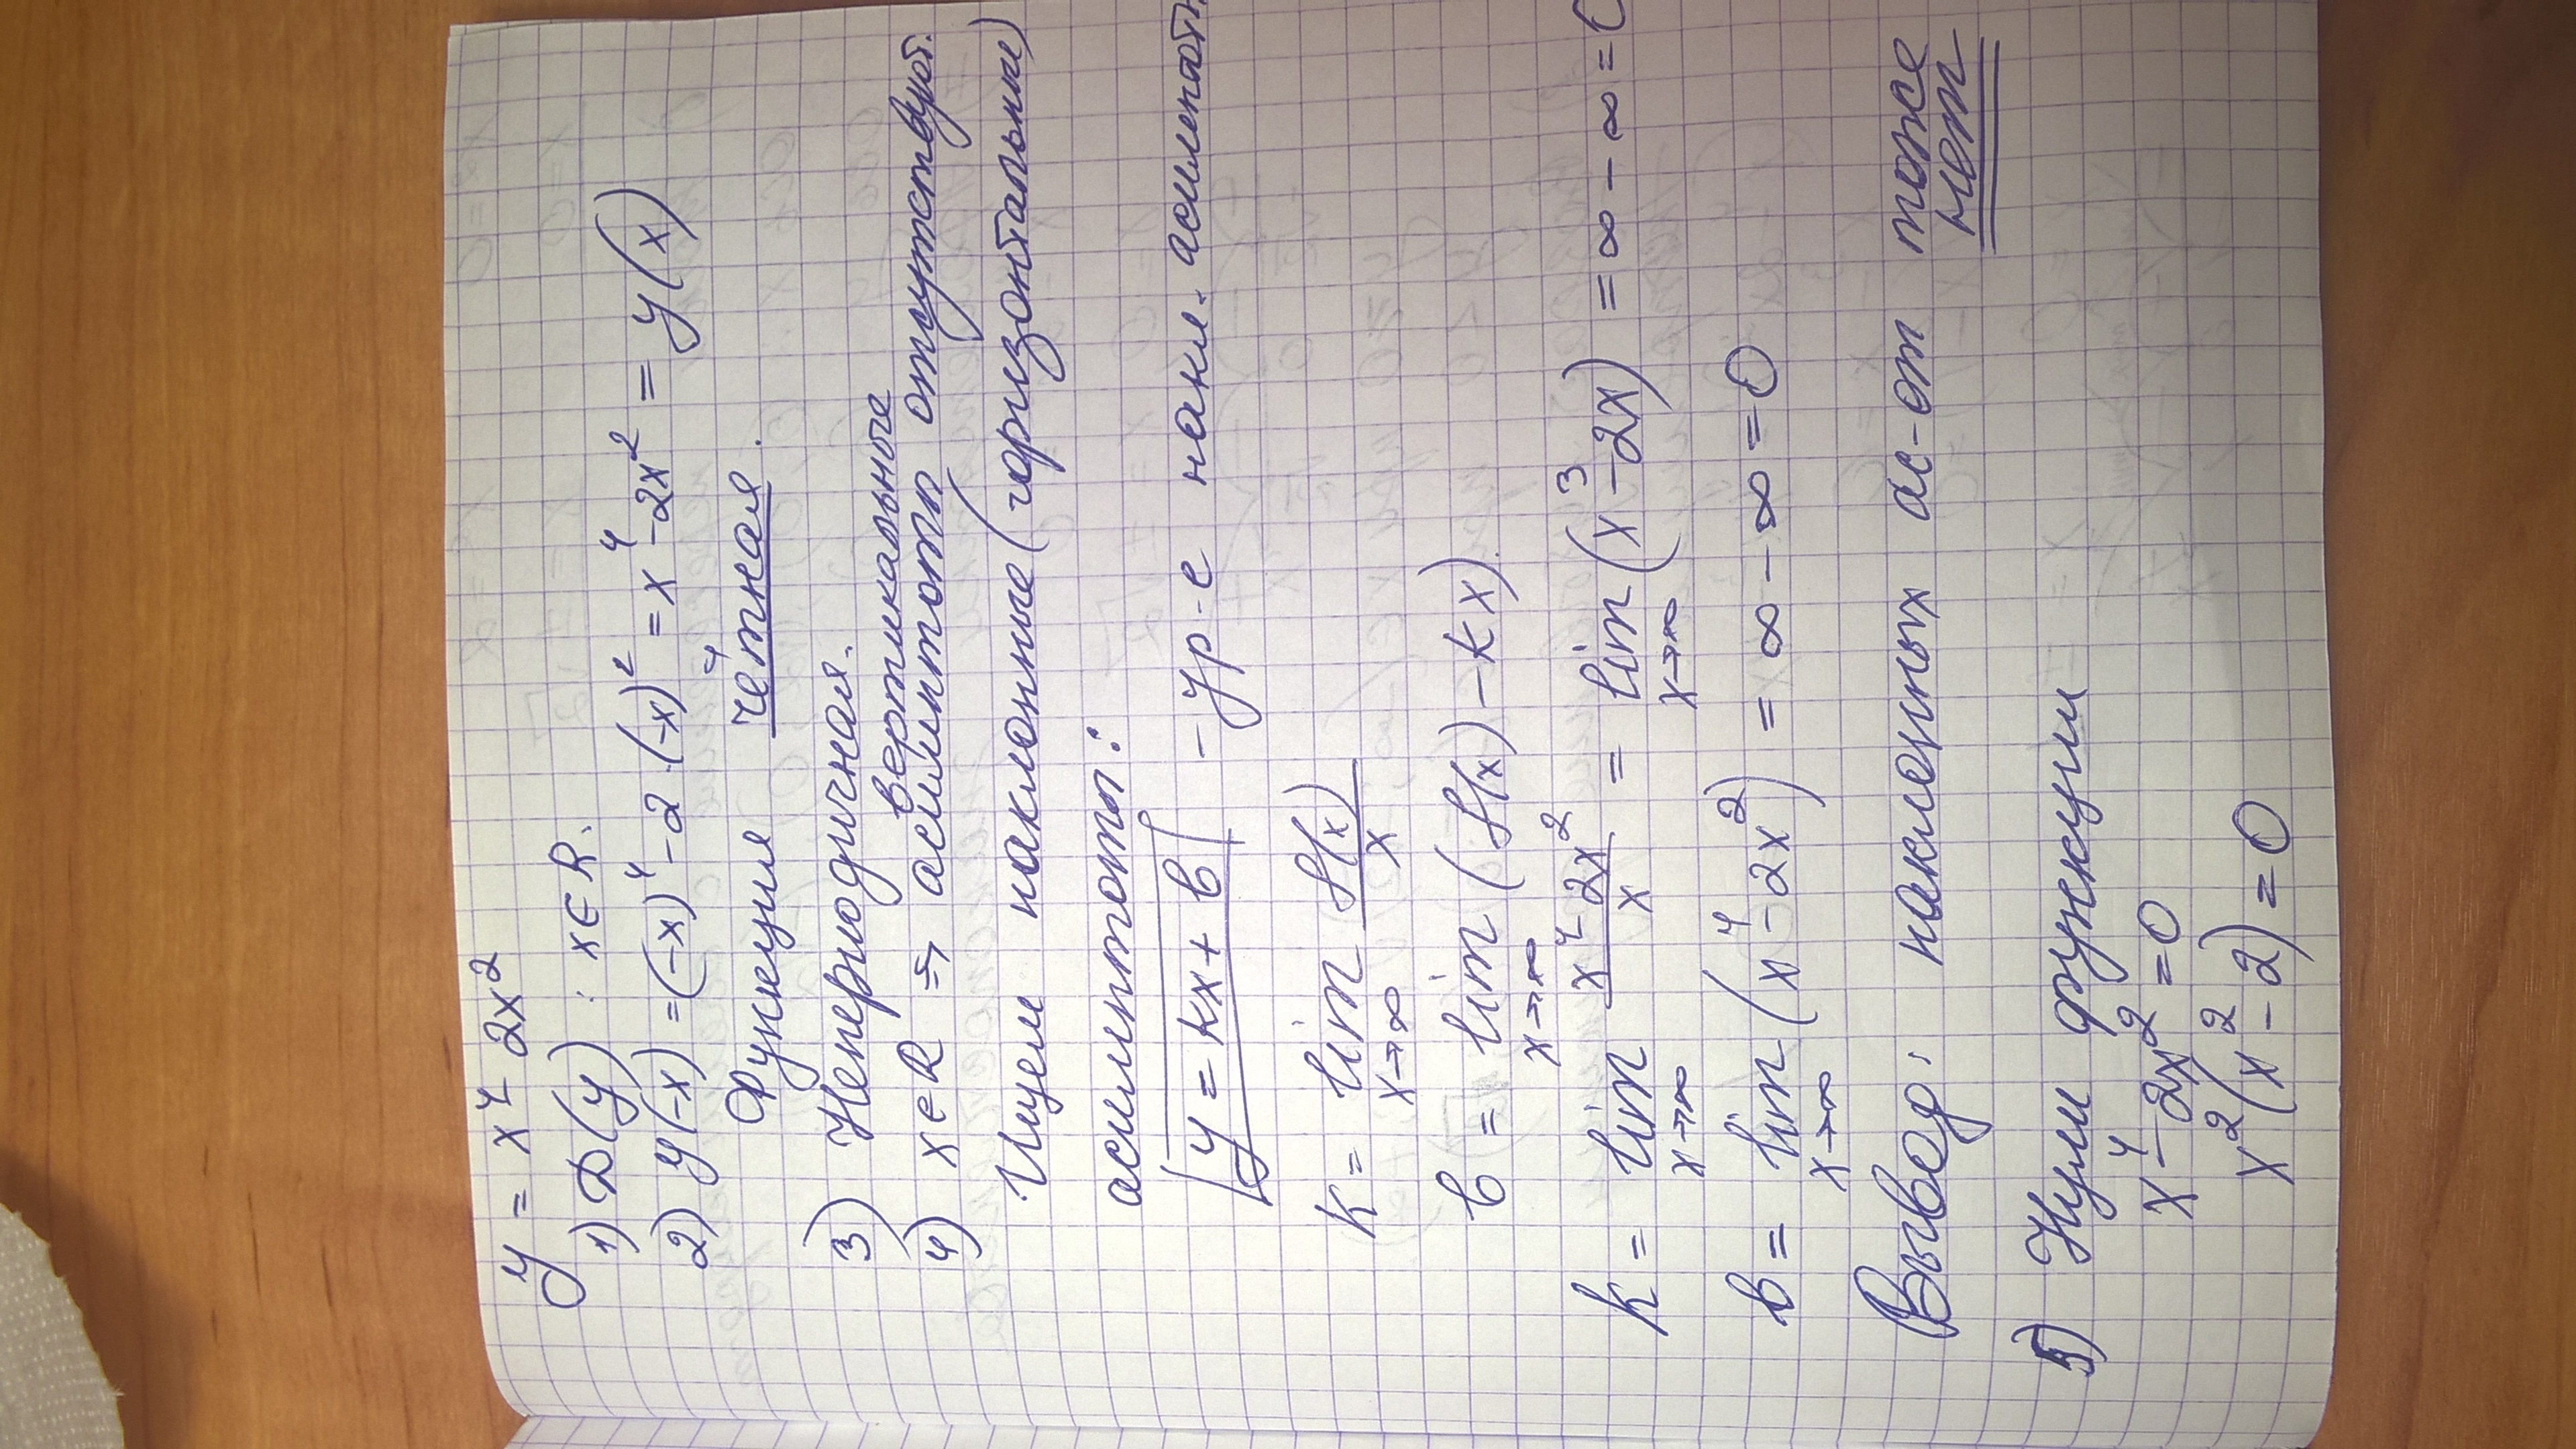 y = x⁴ - 2x²
1) D(y) : x ∈ R.
2) y(-x) = (-x)⁴ - 2·(-x)² = x⁴ - 2x² = y(x)
Функция чётная.
3) Непериодичная.
4) x ∈ R ⇒ вертикальные асимптоты отсутствуют.
Ищем наклонные (горизонтальные)
асимптоты:
y = kx + b - ур-е накл. асимптот
k = lim x→∞ f(x)/x
b = lim x→∞ (f(x) - kx).
k = lim x→∞ (x⁴ - 2x²)/x = lim x→∞ (x³ - 2x) = ∞ - ∞ =
b = lim x→∞ (x⁴ - 2x²) = ∞ - ∞ = 0
Вывод: наклонных ас-от тоже нет
5) Нули функции
x⁴ - 2x² = 0
x²(x² - 2) = 0